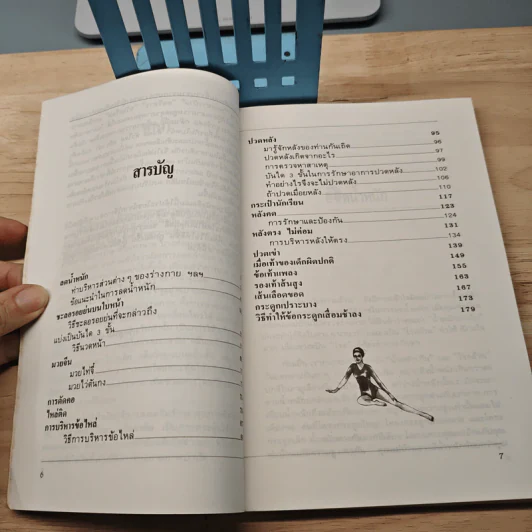 สารบัญ
ลดน้ำหนัก
ท่าบริหารส่วนต่าง ๆ ของร่างกาย ฯลฯ
ข้อแนะนำในการลดน้ำหนัก
ชะลอรอยย่นบนใบหน้า
วิธีชะลอรอยย่นที่จะกล่าวถึง
แบ่งเป็นบันได 3 ขั้น
วิธีนวดหน้า
มวยจีน
มวยไท่จี๋
มวยไว่ตันกง
การดัดคอ
ไหล่ติด
การบริหารข้อไหล่
วิธีการบริหารข้อไหล่
6
ปวดหลัง 95
มารู้จักหลังของท่านกันเถิด 96
ปวดหลังเกิดจากอะไร 97
การตรวจหาสาเหตุ 99
บันได 3 ขั้นในการรักษาอาการปวดหลัง 102
ทำอย่างไรจึงจะไม่ปวดหลัง 106
ถ้าปวดเมื่อยหลัง 110
กระเป๋านักเรียน 117
หลังคด 123
การรักษาและป้องกัน 124
หลังตรง ไม่ค่อม 131
การบริหารหลังให้ตรง 134
ปวดเข่า 139
เมื่อเท้าของเด็กผิดปกติ 149
ข้อเท้าแพลง 155
รองเท้าส้นสูง 163
เส้นเลือดขอด 167
กระดูกเปราะบาง 173
วิธีทำให้ข้อกระดูกเสื่อมช้าลง 179
7